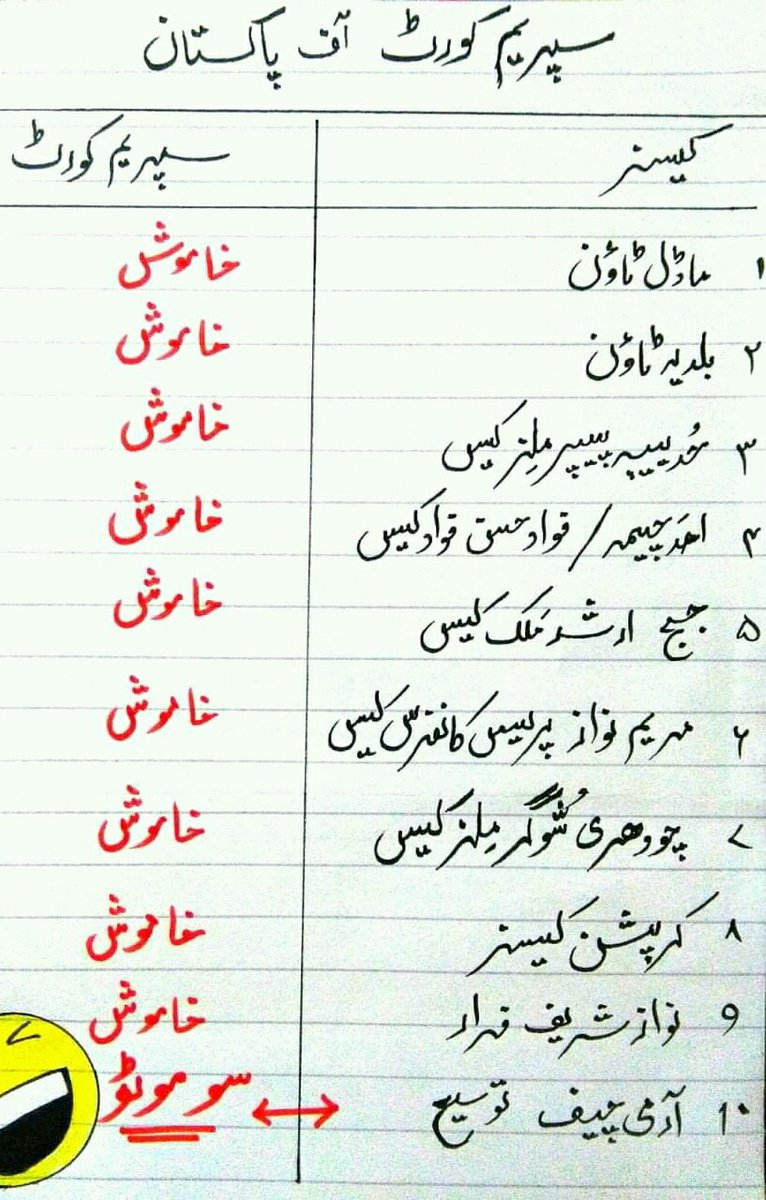 سپریم کورٹ آف پاکستان
کیسز سپریم کورٹ
۱ ماڈل ٹاؤن خاموش
۲ بلدیہ ٹاؤن خاموش
۳ حُدیبیہ پیپر مِلز کیس خاموش
۴ احَد چیمہ / فواد حسن فواد کیس خاموش
۵ جج ارشد مَلک کیس خاموش
۶ مریم نواز پریس کانفرس کیس خاموش
۷ چوودھری شُوگر مِلز کیس خاموش
۸ کرپشن کیسز خاموش
۹ نواز شریف فرار خاموش
۱۰ آرمی چیف توسیع ↔ سو موٹو